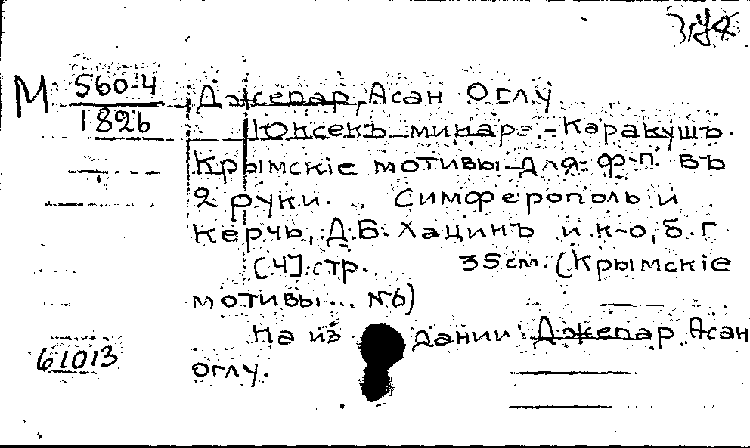 М 560-4
1826
Джепар, Асан Оглу
Юксекъ минаре. - Каракушъ.
Крымскіе мотивы для ф-п. въ
2 руки. Симферополь и
Керчь, Д.Б. Хацинъ и к-о, б.г.
[4] стр. 35 см. (Крымскіе
мотивы... №6)
На из дании: Джепар, Асан
оглу.
61013